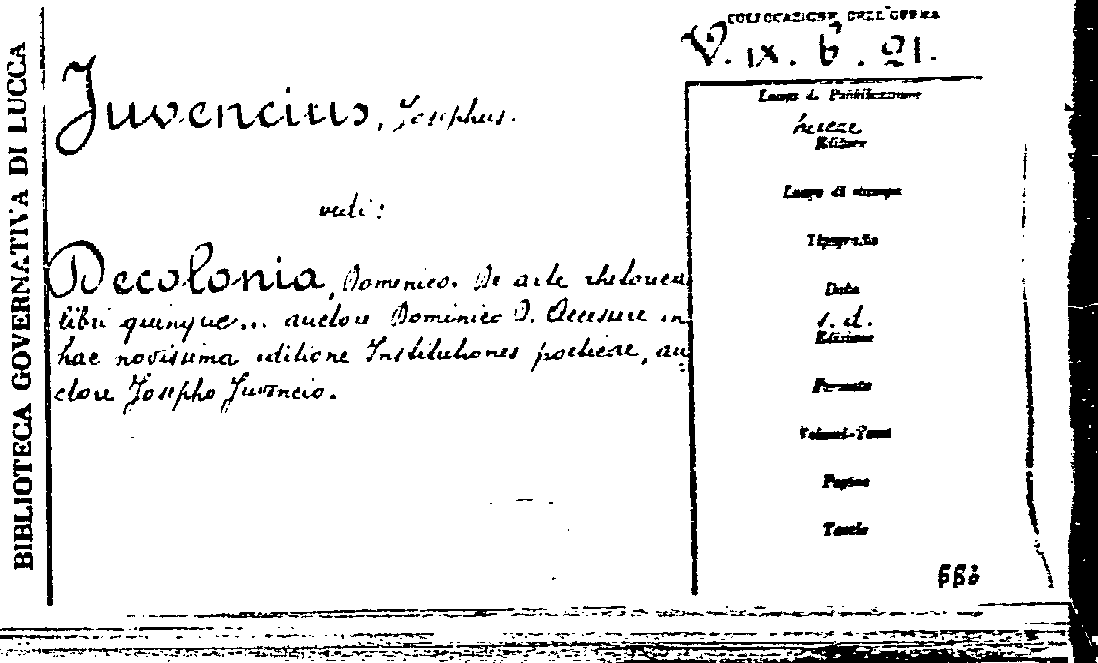 BIBLIOTECA GOVERNATIVA DI LUCCA
COLLOCAZIONE DELL'OPERA
V. IX. 6. 21.
Juvencius, Josephus.
vedi:
Decolonia, Domenico. De arte rhetorica
libri quinque... auctore Dominico D. Accesere in
hac novissima editione Institutiones poeticae, au
ctore Josepho Juvencio.
Luogo di Pubblicazione
Editore
Luogo di stampa
Tipografia
Data
s. d.
Edizione
Formato
Volumi-Tomi
Pagine
Tavole